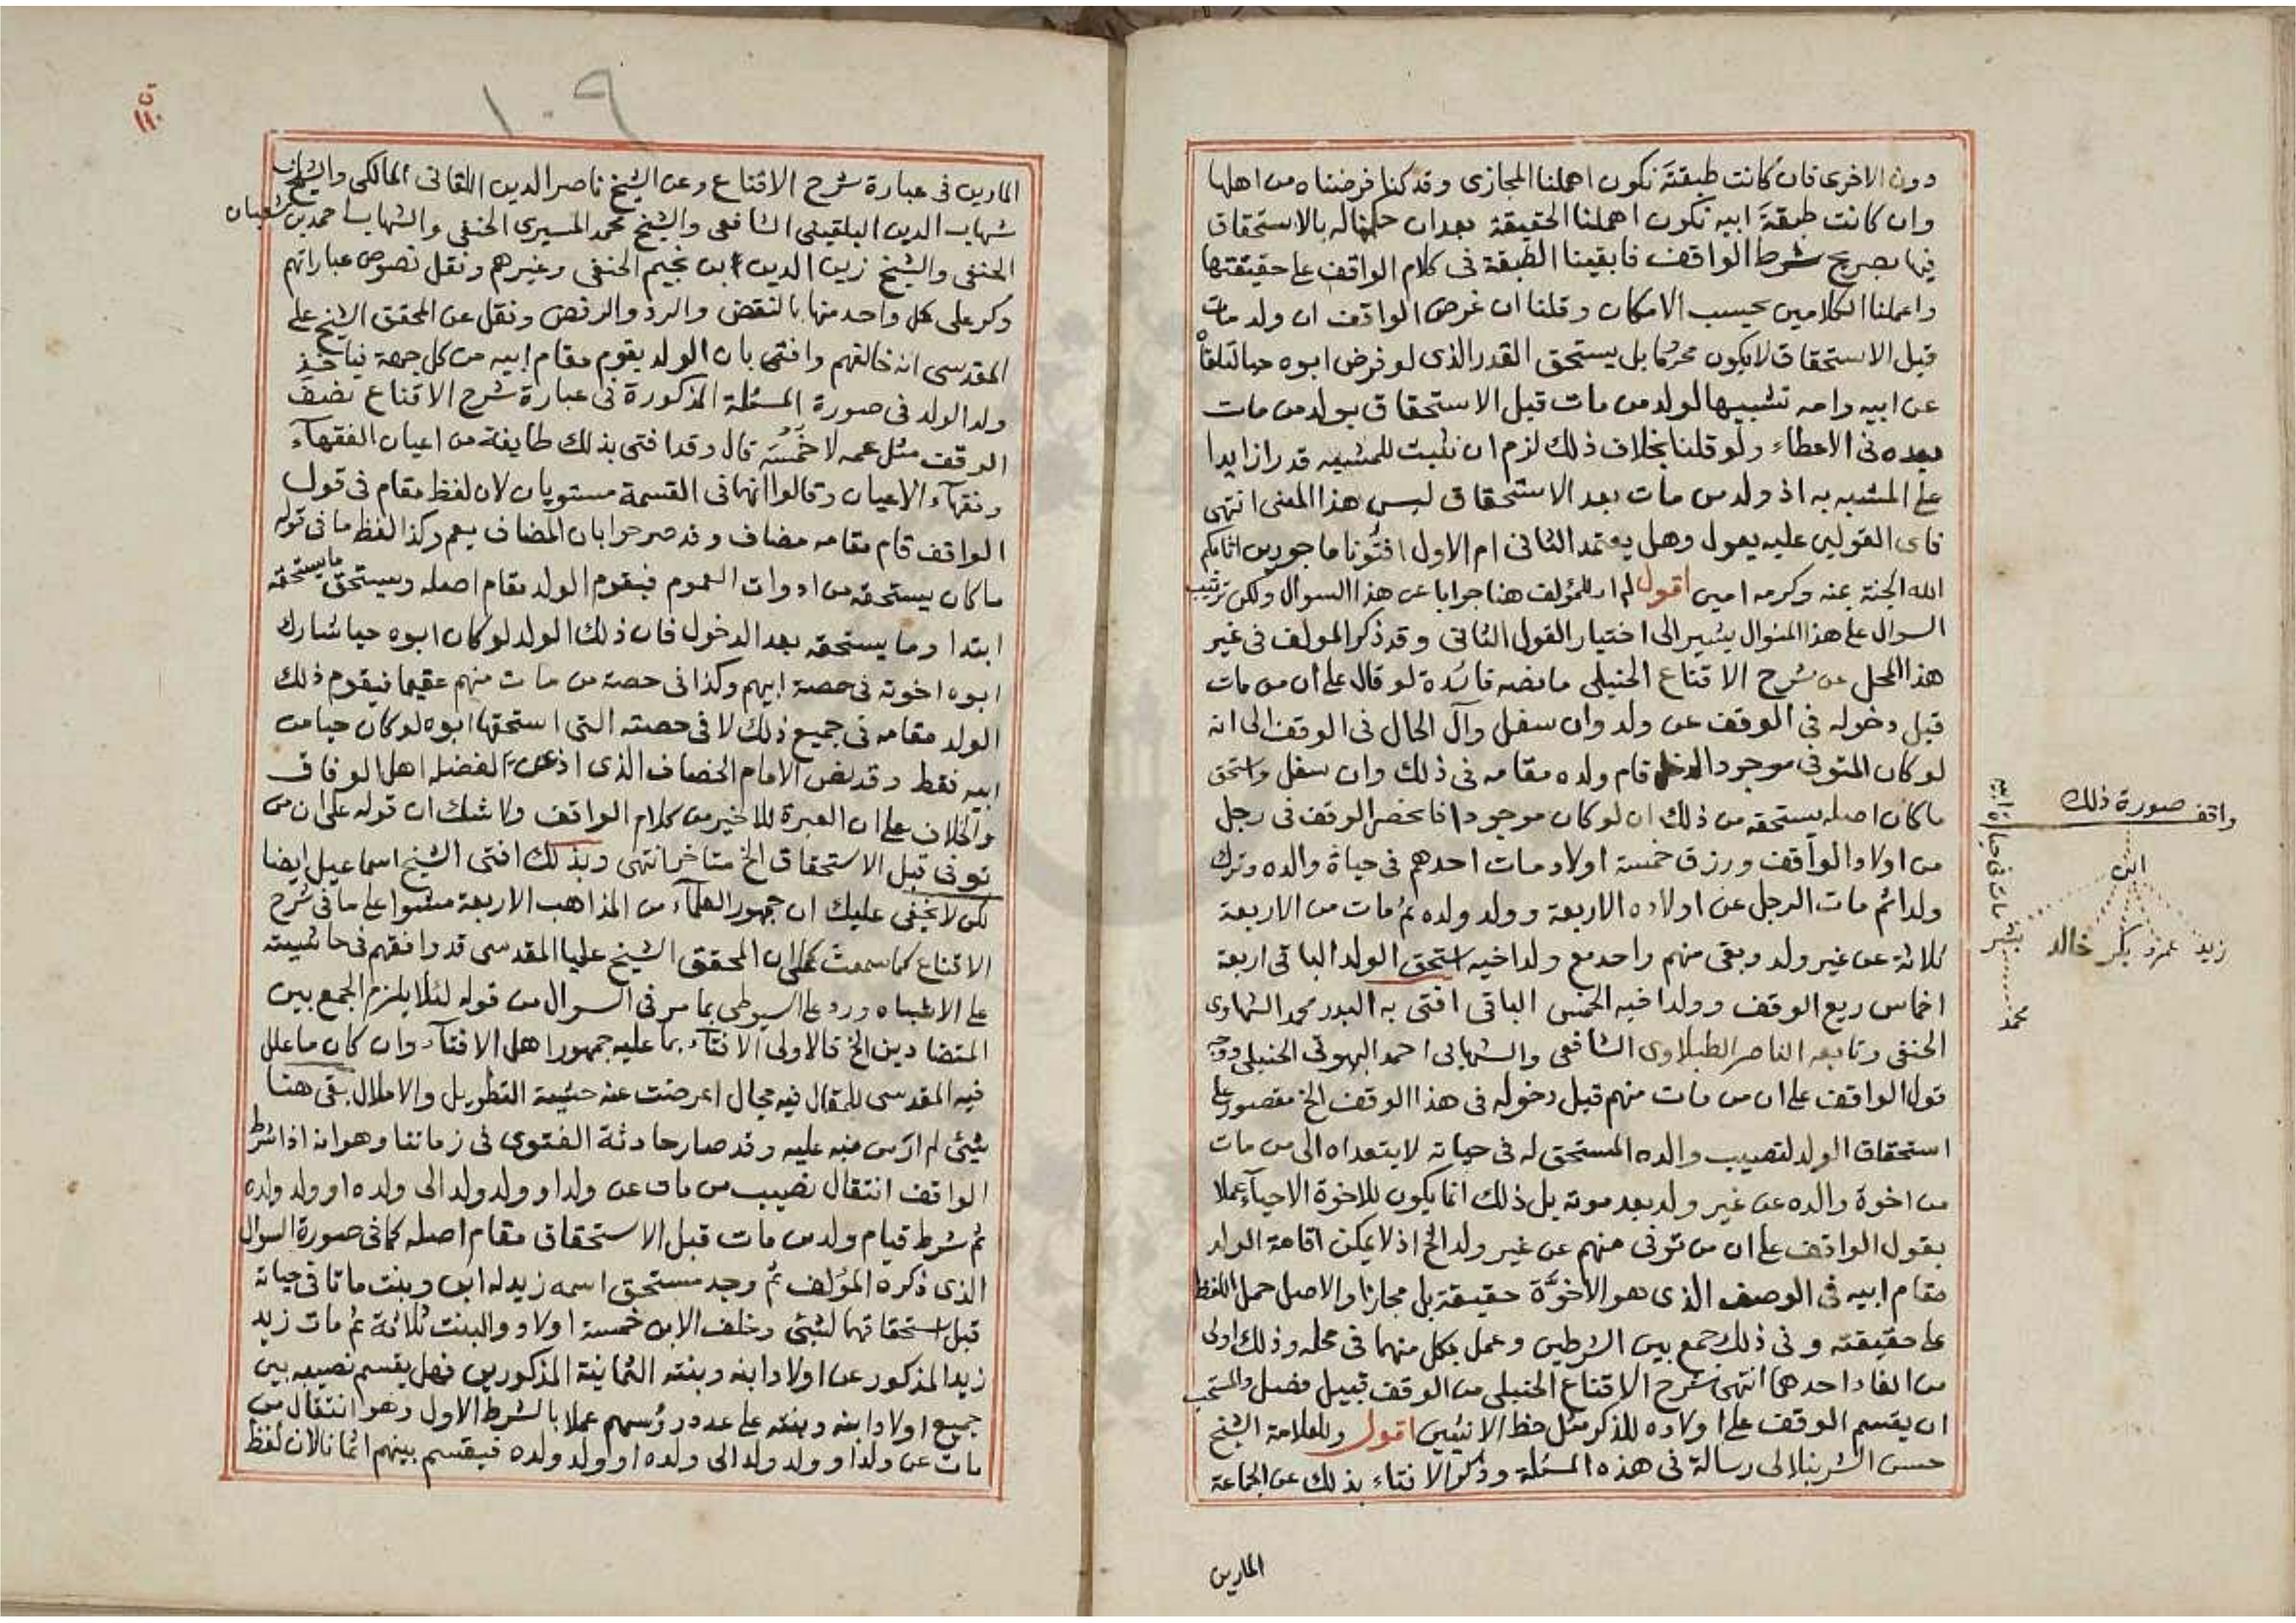 دون الاخرى فان كانت طبقته نكون اهملنا المجازى وقد كنا فرضناه من اهلها
وان كانت طبقة ابيه نكون اهملنا الحقيقة بعد ان حكمنا له بالاستحقاق
فيها بصريح شرط الواقف فابقينا الطبقة فى كلام الواقف على حقيقتها
واعملنا الكلامين بحسب الامكان وقلنا ان غرض الواقف ان ولد من مات
قبل الاستحقاق لا يكون محروما بل يستحق القدر الذى لو فرض ابوه حيا لتلقاه
عن ابيه وامه تشبيها لولد من مات قبل الاستحقاق بولد من مات
بعده فى الاعطاء ولو قلنا بخلاف ذلك لزم ان نثبت للمشبه قدرا زايدا
على المشبه به اذ ولد من مات بعد الاستحقاق ليس هذا المعنى انتهى
فاى القولين عليه يعول وهل يعتمد الثانى ام الاول افتونا ماجورين اثابكم
الله الجنة بمنه وكرمه امين اقول لم ار للمؤلف هنا جوابا عن هذا السوال ولكن ترتيب
السوال على هذا المنوال يشير الى اختيار القول الثانى وقد ذكر المولف فى غير
هذا المحل عن شرح الاقناع الحنبلى ما نصه فائدة لو قال على ان من مات
قبل دخوله فى الوقف عن ولد وان سفل وآل الحال فى الوقف الى انه
لو كان المتوفى موجودا لدخل قام ولده مقامه فى ذلك وان سفل واستحق
ما كان اصله يستحقه من ذلك ان لو كان موجودا فانحصر الوقف فى رجل
من اولاد الواقف ورزق خمسة اولاد مات احدهم فى حياة والده وترك
ولدا ثم مات الرجل عن اولاده الاربعة وولد ولده ثم مات من الاربعة
ثلاثة عن غير ولد وبقى منهم واحد مع ولد اخيه استحق الولد الباقى اربعة
اخماس ريع الوقف وولد اخيه الخمس الباقى افتى به البدر محمد الشهاوى
الحنفى وتابعه الناصر الطبلاوى الشافعى والشهابى احمد البهوتى الحنبلى ووجه
قول الواقف على ان من مات منهم قبل دخوله فى هذا الوقف الخ مقصور على
استحقاق الولد لنصيب والده المستحق له فى حياته لا يتعداه الى من مات
من اخوة والده عن غير ولد بعد موته بل ذلك انما يكون للاخوة الاحيآء عملا
بقول الواقف على ان من توفى منهم عن غير ولد الخ اذ لا يمكن اقامة الولد
مقام ابيه فى الوصف الذى هو الاخوّة حقيقة بل مجازا والاصل حمل اللفظ
على حقيقته وفى ذلك جمع بين الشرطين وعمل بكل منهما فى محله وذلك اولى
من الغاء احدهما انتهى شرح الاقناع الحنبلى من الوقف قبيل فصل والمستحب
ان يقسم الوقف على اولاده للذكر مثل حظ الانثيين اقول وللعلامة الشيخ
حسن الشرنبلالى رسالة فى هذه المسئلة وذكر الافتاء بذلك عن الجماعة
المارين
صورة ذلك
واقف
ابن
زيد عمرو بكر خالد
بشر مات فى حياة ابيه
محمد
١٠٩
١١٠
المارين فى عبارة شرح الاقناع وعن الشيخ ناصر الدين اللقانى المالكى والشيخ
شهاب الدين البلقينى الشافعى والشيخ محمد المسيرى الحنفى والشهاب احمد بن شعبان
الحنفى والشيخ زين الدين ابن نجيم الحنفى وغيرهم ونقل نصوص عباراتهم
وكر على كل واحد منها بالنقض والرد والرفض ونقل عن المحقق الشيخ على
المقدسى انه خالفهم وافتى بان الولد يقوم مقام ابيه من كل جهة فياخذ
ولد الولد فى صورة المسئلة المذكورة فى عبارة شرح الاقناع نصف
الوقف مثل عمه لا خُمُسَه قال وقد افتى بذلك طايفة من اعيان الفقهآء
وفقهآء الاعيان وقالوا انهما فى القسمة مستويان لان لفظ مقام فى قول
الواقف قام مقامه مضاف وقد صرحوا بان المضاف يعم وكذا لفظ ما فى قوله
ما كان يستحقه من ادوات العموم فيقوم الولد مقام اصله ويستحق ما يستحقه
ابتدا وما يستحقه بعد الدخول فان ذلك الولد لو كان ابوه حيا شارك
ابوه اخوته فى حصة ابيهم وكذا فى حصة من مات منهم عقيما فيقوم ذلك
الولد مقامه فى جميع ذلك لا فى حصته التى استحقها ابوه لو كان حيا من
ابيه فقط وقد نص الامام الخصاف الذى اذعن لفضله اهل الوفاق
والخلاف على ان العبرة للاخير من كلام الواقف ولا شك ان قوله على ان من
توفى قبل الاستحقاق الخ متاخر انتهى وبذلك افتى الشيخ اسماعيل ايضا
لكن لا يخفى عليك ان جمهور العلمآء من المذاهب الاربعة مشوا على ما فى شرح
الاقناع كما سمعت على ان المحقق الشيخ عليا المقدسى قد وافقهم فى حاشيته
على الاشباه ورد على السيوطى بما مر فى السوال من قوله لئلا يلزم الجمع بين
المتضادين الخ فالاولى الافتآء بما عليه جمهور اهل الافتآء وان كان ما علل
فيه المقدسى للمقال فيه مجال اعرضت عنه خشية التطويل والاملال بقى هنا
شيئ لم ار من نبه عليه وقد صار حادثة الفتوى فى زماننا وهو انه اذا شرط
الواقف انتقال نصيب من مات عن ولد او ولد ولد الى ولده او ولد ولده
ثم شرط قيام ولد من مات قبل الاستحقاق مقام اصله كما فى صورة السوال
الذى ذكره المؤلف ثم وجد مستحق اسمه زيد له ابن وبنت ماتا فى حياته
قبل استحقاقهما لشيئ وخلف الابن خمسة اولاد والبنت ثلاثة ثم مات زيد
زيد المذكور عن اولاد ابنه وبنته الثمانية المذكورين فهل يقسم نصيبه بين
جميع اولاد ابنه وبنته على عدد رؤسهم عملا بالشرط الاول وهو انتقال من
مات عن ولد او ولد ولد الى ولده او ولد ولده فيقسم بينهم اثمانا لان لفظ